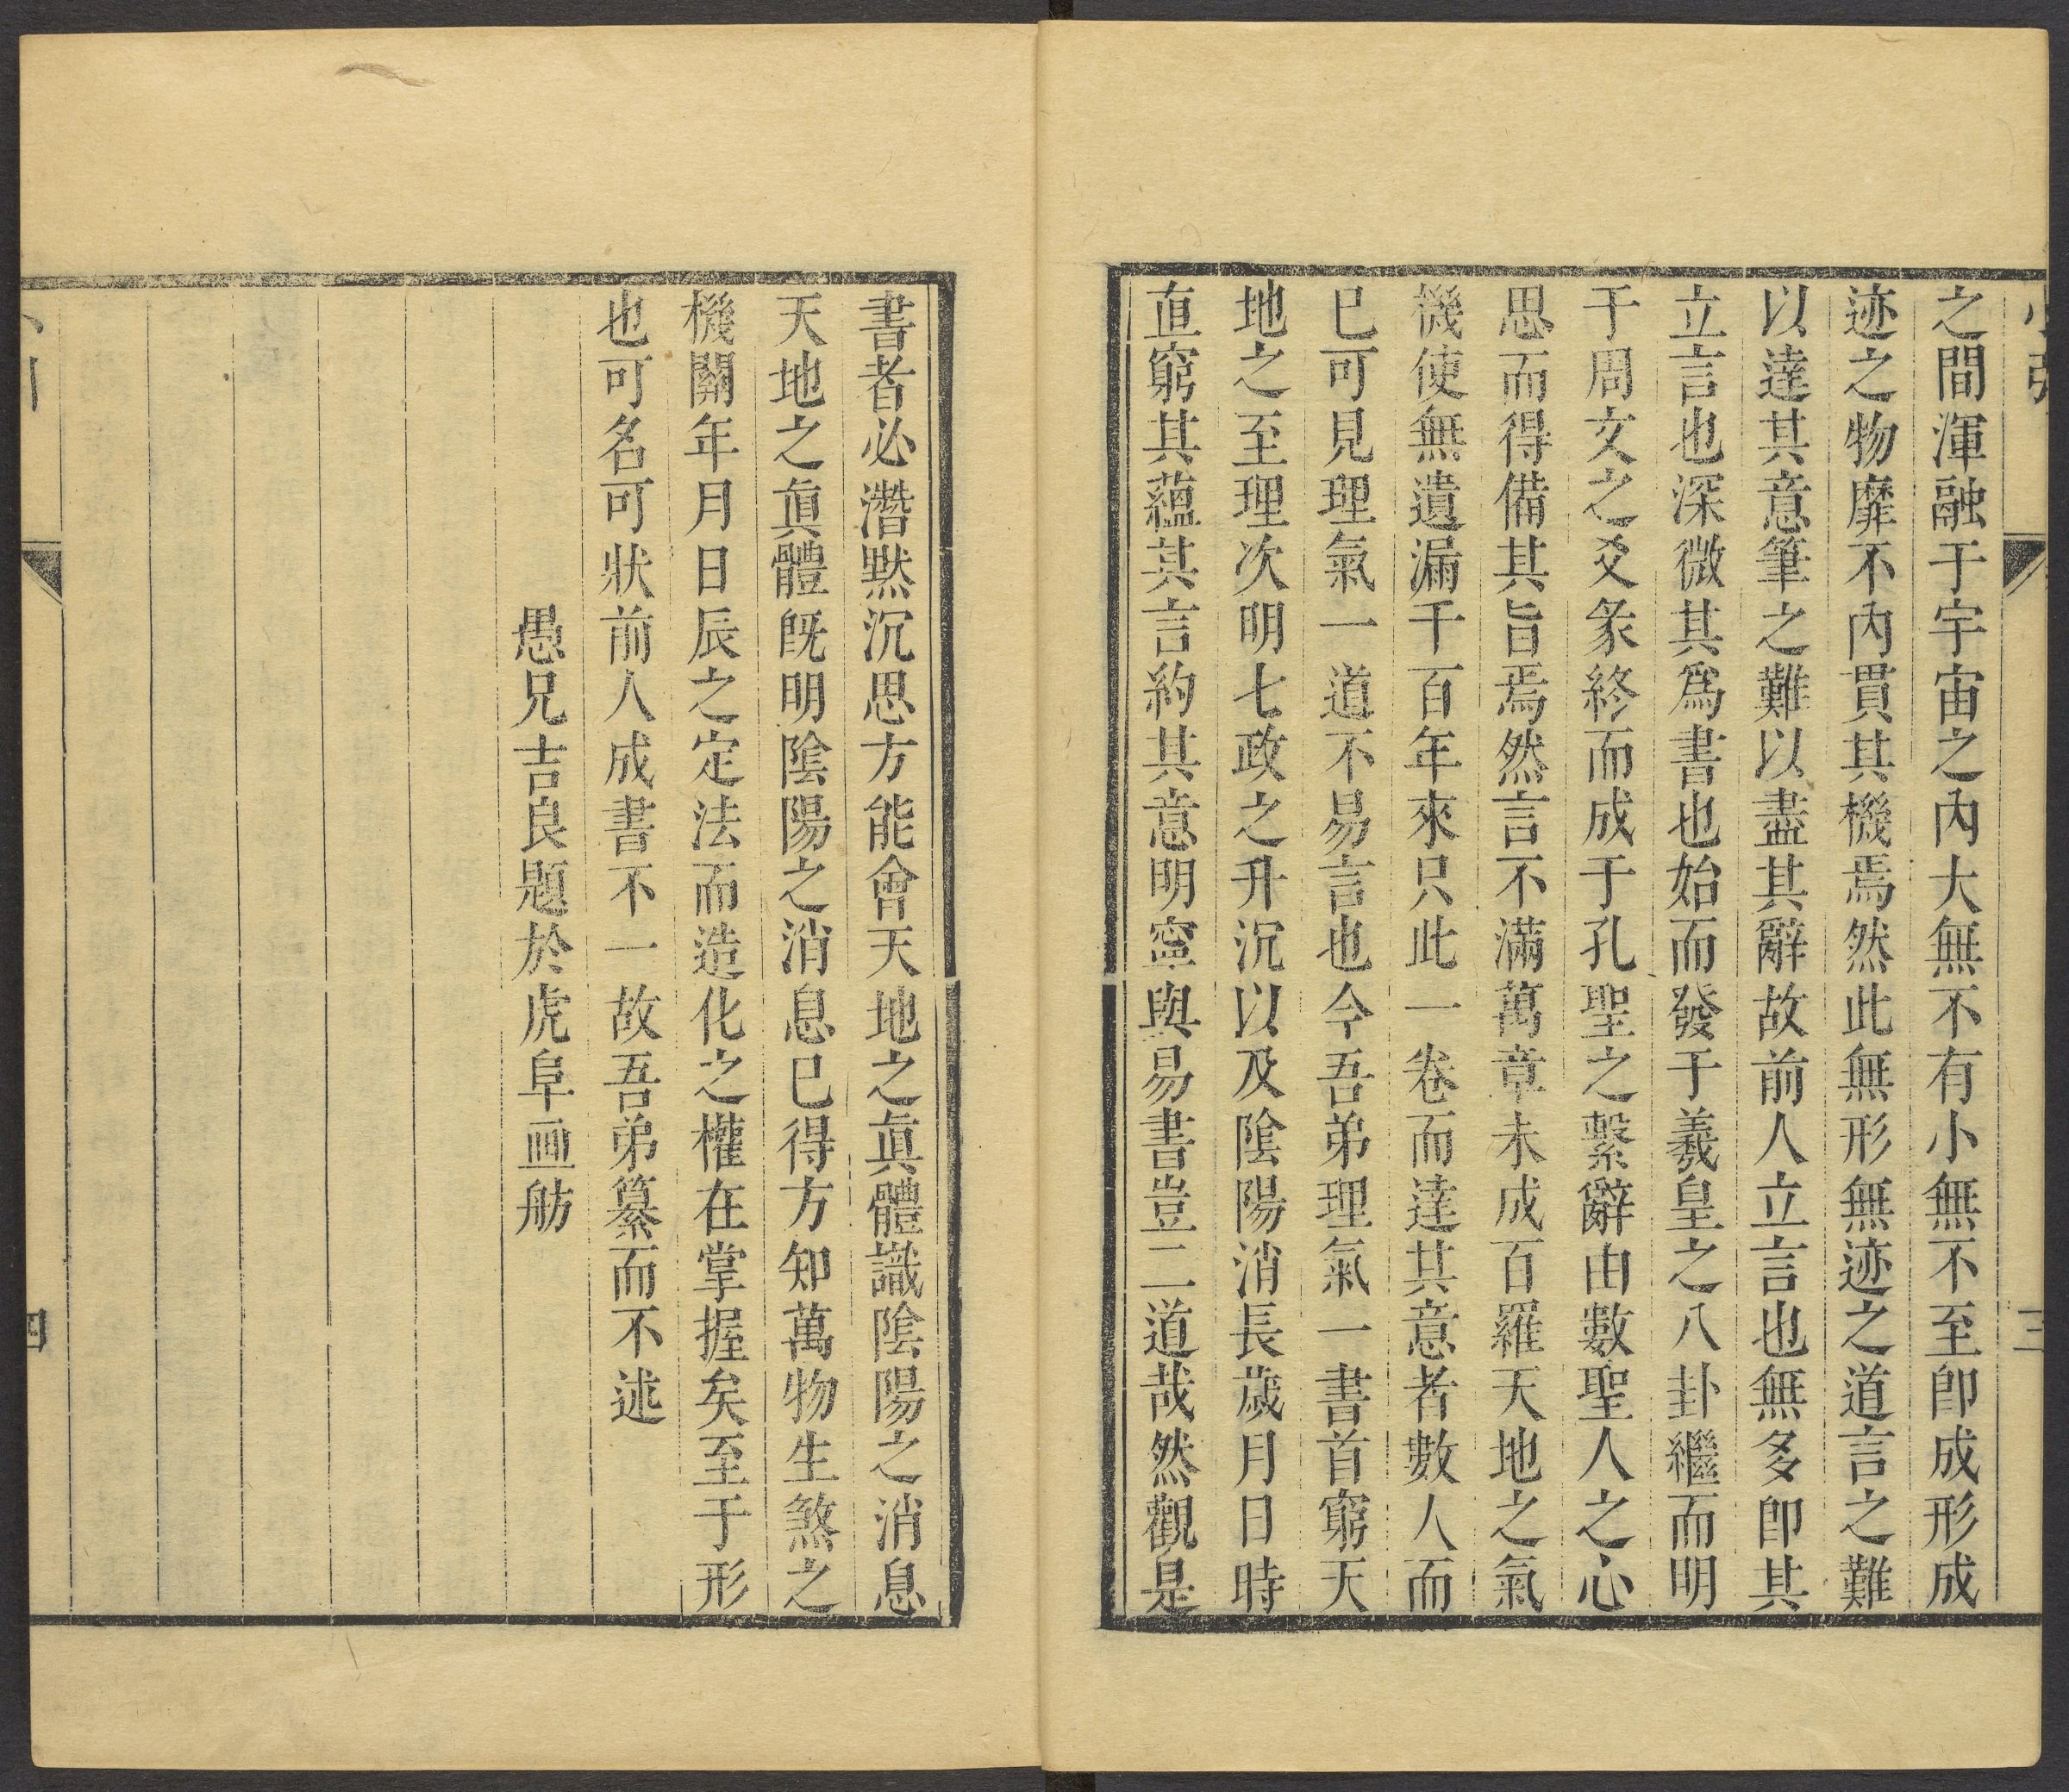 之間渾融于宇宙之內大無不有小無不至卽成形成
迹之物靡不內貫其機焉然此無形無迹之道言之難
以達其意筆之難以盡其辭故前人立言也無多卽其
立言也深微其爲書也始而發于羲皇之八卦繼而明
于周文之爻彖終而成于孔聖之繫辭由數聖人之心
思而得備其旨焉然言不滿萬章未成百羅天地之氣
機使無遺漏千百年來只此一卷而達其意者數人而
已可見理氣一道不易言也今吾弟理氣一書首窮天
地之至理次明七政之升沉以及陰陽消長歲月日時
直窮其蘊其言約其意明寧與易書豈二道哉然觀是
書者必潛默沉思方能會天地之眞體識陰陽之消息
天地之眞體旣明陰陽之消息已得方知萬物生煞之
機關年月日辰之定法而造化之權在掌握矣至于形
也可名可狀前人成書不一故吾弟纂而不述
愚兄吉良題於虎阜画舫